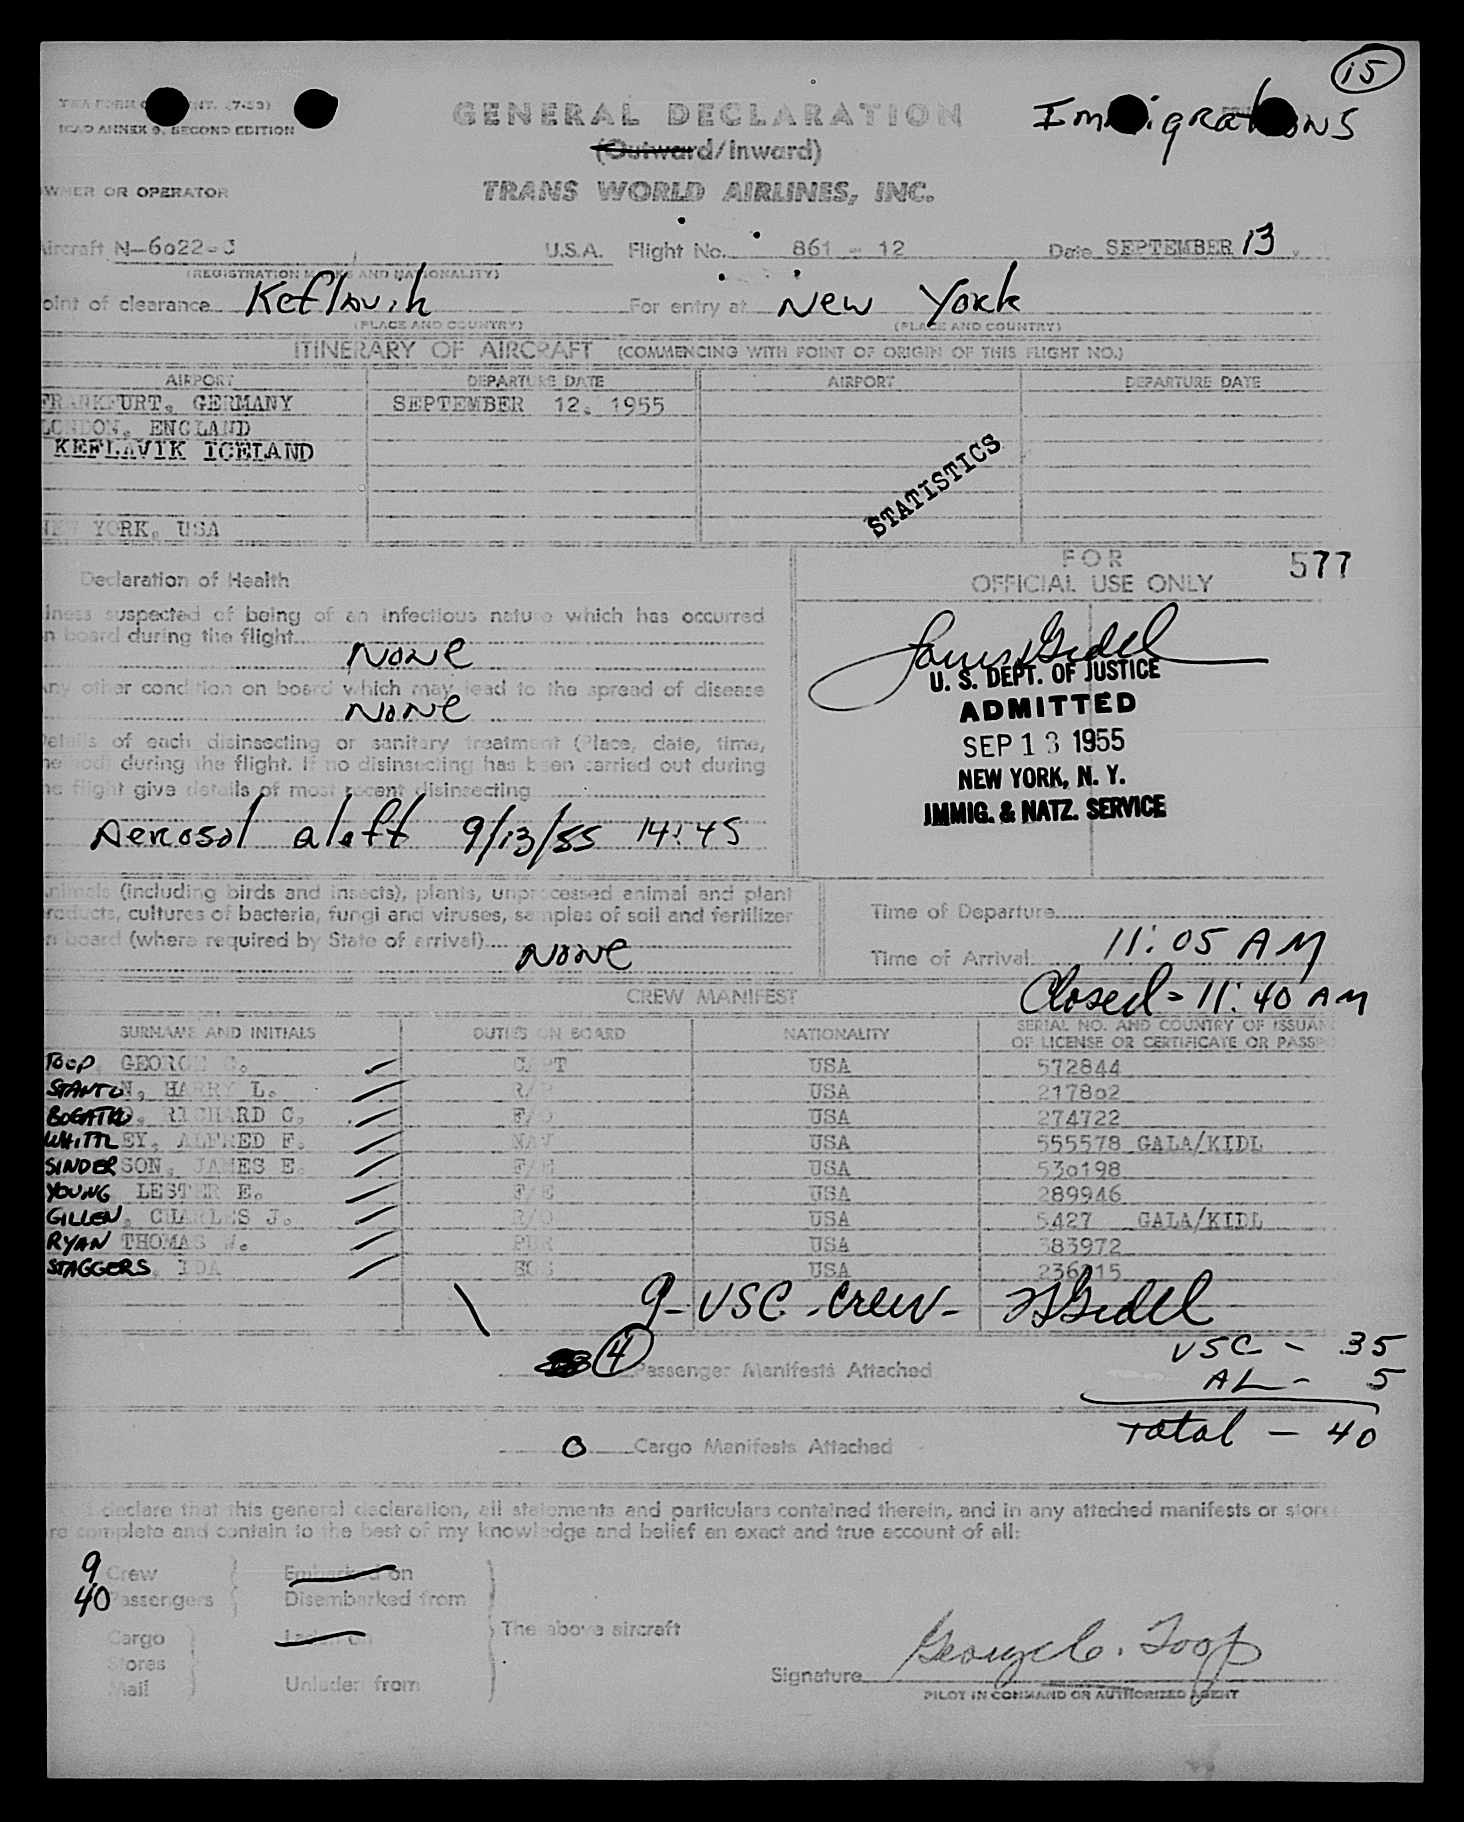 15
ICAO ANNEX 9, SECOND EDITION
GENERAL DECLARATION
Immigrations
(Outward/Inward)
OWNER OR OPERATOR
TRANS WORLD AIRLINES, INC.
Aircraft N-6022-C U.S.A. Flight No. 861 - 12 Date SEPTEMBER 13,
(REGISTRATION MARKS AND NATIONALITY)
Point of clearance Keflavik For entry at New York
(PLACE AND COUNTRY) (PLACE AND COUNTRY)
ITINERARY OF AIRCRAFT (COMMENCING WITH POINT OF ORIGIN OF THIS FLIGHT NO.)
AIRPORT DEPARTURE DATE AIRPORT DEPARTURE DATE
FRANKFURT, GERMANY SEPTEMBER 12, 1955
LONDON, ENGLAND
KEFLAVIK ICELAND
STATISTICS
NEW YORK, USA
FOR
OFFICIAL USE ONLY
577
Declaration of Health
illness suspected of being of an infectious nature which has occurred
on board during the flight
None
Any other condition on board which may lead to the spread of disease
None
Details of each disinsecting or sanitary treatment (Place, date, time,
method) during the flight. If no disinsecting has been carried out during
the flight give details of most recent disinsecting
Aerosol aloft 9/13/55 14:45
U. S. DEPT. OF JUSTICE
ADMITTED
SEP 13 1955
NEW YORK, N. Y.
IMMIG. & NATZ. SERVICE
Animals (including birds and insects), plants, unprocessed animal and plant
products, cultures of bacteria, fungi and viruses, samples of soil and fertilizer
on board (where required by State of arrival)
None
Time of Departure
Time of Arrival 11:05 AM
Closed - 11:40 AM
CREW MANIFEST
SURNAME AND INITIALS DUTIES ON BOARD NATIONALITY SERIAL NO. AND COUNTRY OF ISSUAN
OF LICENSE OR CERTIFICATE OR PASSP
TOOP, GEORGE C. CAPT USA 572844
STANTON, HARRY L. USA 217802
RICHARD C. F/O USA 274722
WHITTLEY, ALFRED F. NAV USA 555578 GALA/KIDL
SINDERSON, JAMES E. F/E USA 530198
YOUNG LESTER E. F/E USA 289946
GILLEN, CHARLES J. R/O USA 5427 GALA/KIDL
RYAN THOMAS W. PUR USA 383972
STAGGERS, IDA USA
9 - USC - crew -
4 Passenger Manifests Attached
USC - 35
AL - 5
Total - 40
0 Cargo Manifests Attached
I declare that this general declaration, all statements and particulars contained therein, and in any attached manifests or stores
are complete and contain to the best of my knowledge and belief an exact and true account of all:
9 Crew Embarked on
40 Passengers Disembarked from
The above aircraft
Cargo Laden on
Stores
Mail Unladen from
Signature George C. Toop
PILOT IN COMMAND OR AUTHORIZED AGENT